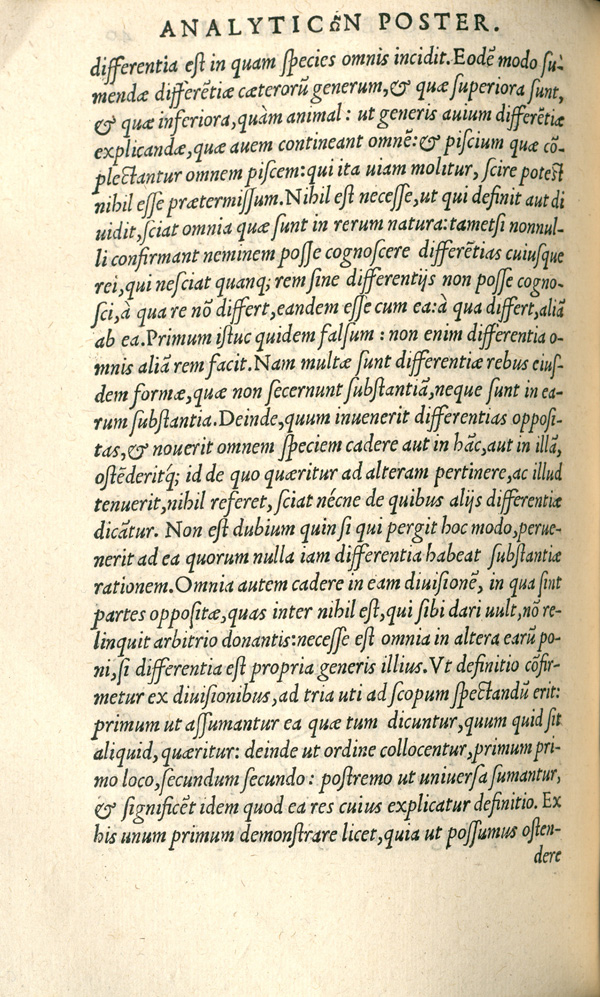 ANALYTICῶN POSTER.
differentia est in quam species omnis incidit. Eodē modo su-
mendæ differētiæ cæterorū generum, & quæ superiora sunt,
& quæ inferiora, quàm animal: ut generis auium differētiæ
explicandæ, quæ auem contineant omnē: & piscium quæ cō-
plectantur omnem piscem: qui ita uiam molitur, scire potest
nihil esse prætermissum. Nihil est necesse, ut qui definit aut di
uidit, sciat omnia quæ sunt in rerum natura: tametsi nonnul-
li confirmant neminem posse cognoscere differētias cuiusque
rei, qui nesciat quanq; rem sine differentijs non posse cogno-
sci, à qua re nō differt, eandem esse cum ea: à qua differt, aliā
ab ea. Primum istuc quidem falsum: non enim differentia o-
mnis aliā rem facit. Nam multæ sunt differentiæ rebus eius-
dem formæ, quæ non secernunt substantiā, neque sunt in ea-
rum substantia. Deinde, quum inuenerit differentias opposi-
tas, & nouerit omnem speciem cadere aut in hāc, aut in illā,
ostēderitq́; id de quo quæritur ad alteram pertinere, ac illud
tenuerit, nihil referet, sciat nécne de quibus alijs differentiæ
dicātur. Non est dubium quin si qui pergit hoc modo, perue-
nerit ad ea quorum nulla iam differentia habeat substantiæ
rationem. Omnia autem cadere in eam diuisionē, in qua sint
partes oppositæ, quas inter nihil est, qui sibi dari uult, nō re-
linquit arbitrio donantis: necesse est omnia in altera earū po-
ni, si differentia est propria generis illius. Vt definitio cōfir-
metur ex diuisionibus, ad tria uti ad scopum spectandū erit:
primum ut assumantur ea quæ tum dicuntur, quum quid sit
aliquid, quæritur: deinde ut ordine collocentur, primum pri-
mo loco, secundum secundo: postremo ut uniuersa sumantur,
& significēt idem quod ea res cuius explicatur definitio. Ex
his unum primum demonstrare licet, quia ut possumus osten-
dere